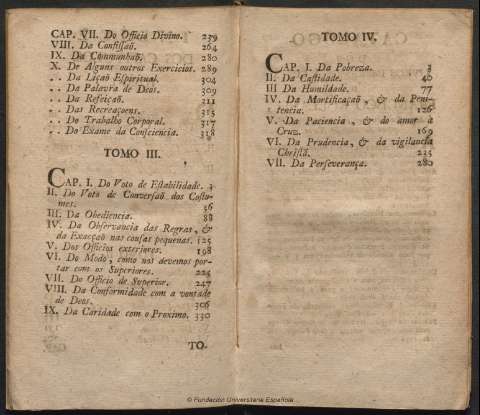 CAP. VII. Do Officio Divino. 239
VIII. Da Confissaõ. 264
IX. Da Communhaõ. 280
X. De Alguns outros Exercicios. 289
.. Da Liçaõ Espiritual. 304
.. Da Palavra de Deos. 309
.. Da Refeiçaõ. 311
.. Das Recreaçoens. 315
.. Do Trabalho Corporal. 317
.. Do Exame da Consciencia. 318
TOMO III.
CAP. I. Do Voto de Estabilidade. 3
II. Do Voto de Conversaõ dos Costu-
mes. 56
III. Da Obediencia. 88
IV. Da Observancia das Regras, &
da Exacçaõ nas cousas pequenas. 125
V. Dos Officios exteriores. 198
VI. Do Modo, como nos devemos por-
tar com os Superiores. 224
VII. Do Officio de Superior. 247
VIII. Da Conformidade com a vontade
de Deos. 306
IX. Da Caridade com o Proximo. 330
TO-
TOMO IV.
CAP. I. Da Pobreza. 3
II. Da Castidade. 40
III Da Humildade. 77
IV. Da Mortificaçaõ, & da Peni-
tencia. 126
V. Da Paciencia, & do amor à
Cruz. 169
VI. Da Prudencia, & da vigilancia
Christã. 225
VII. Da Perseverança. 280
© Fundación Universitaria Española